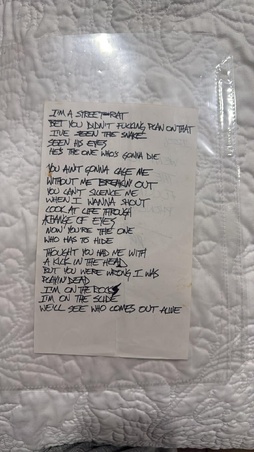 I'M A STREET RAT
BET YOU DIDN'T FUCKING PLAN ON THAT
I'VE SEEN THE SNAKE
SEEN HIS EYES
HE'S THE ONE WHO'S GONNA DIE
YOU AIN'T GONNA CAGE ME
WITHOUT ME BREAKIN' OUT
YOU CAN'T SILENCE ME
WHEN I WANNA SHOUT
LOOK AT LIFE THROUGH
A CHANGE OF EYES
NOW YOU'RE THE ONE
WHO HAS TO HIDE
THOUGHT YOU HAD ME WITH
A KICK IN THE HEAD
BUT YOU WERE WRONG I WAS
PLAYIN DEAD
I'M ON THE
I'M ON THE SLIDE
WE'LL SEE WHO COMES OUT ALIVE